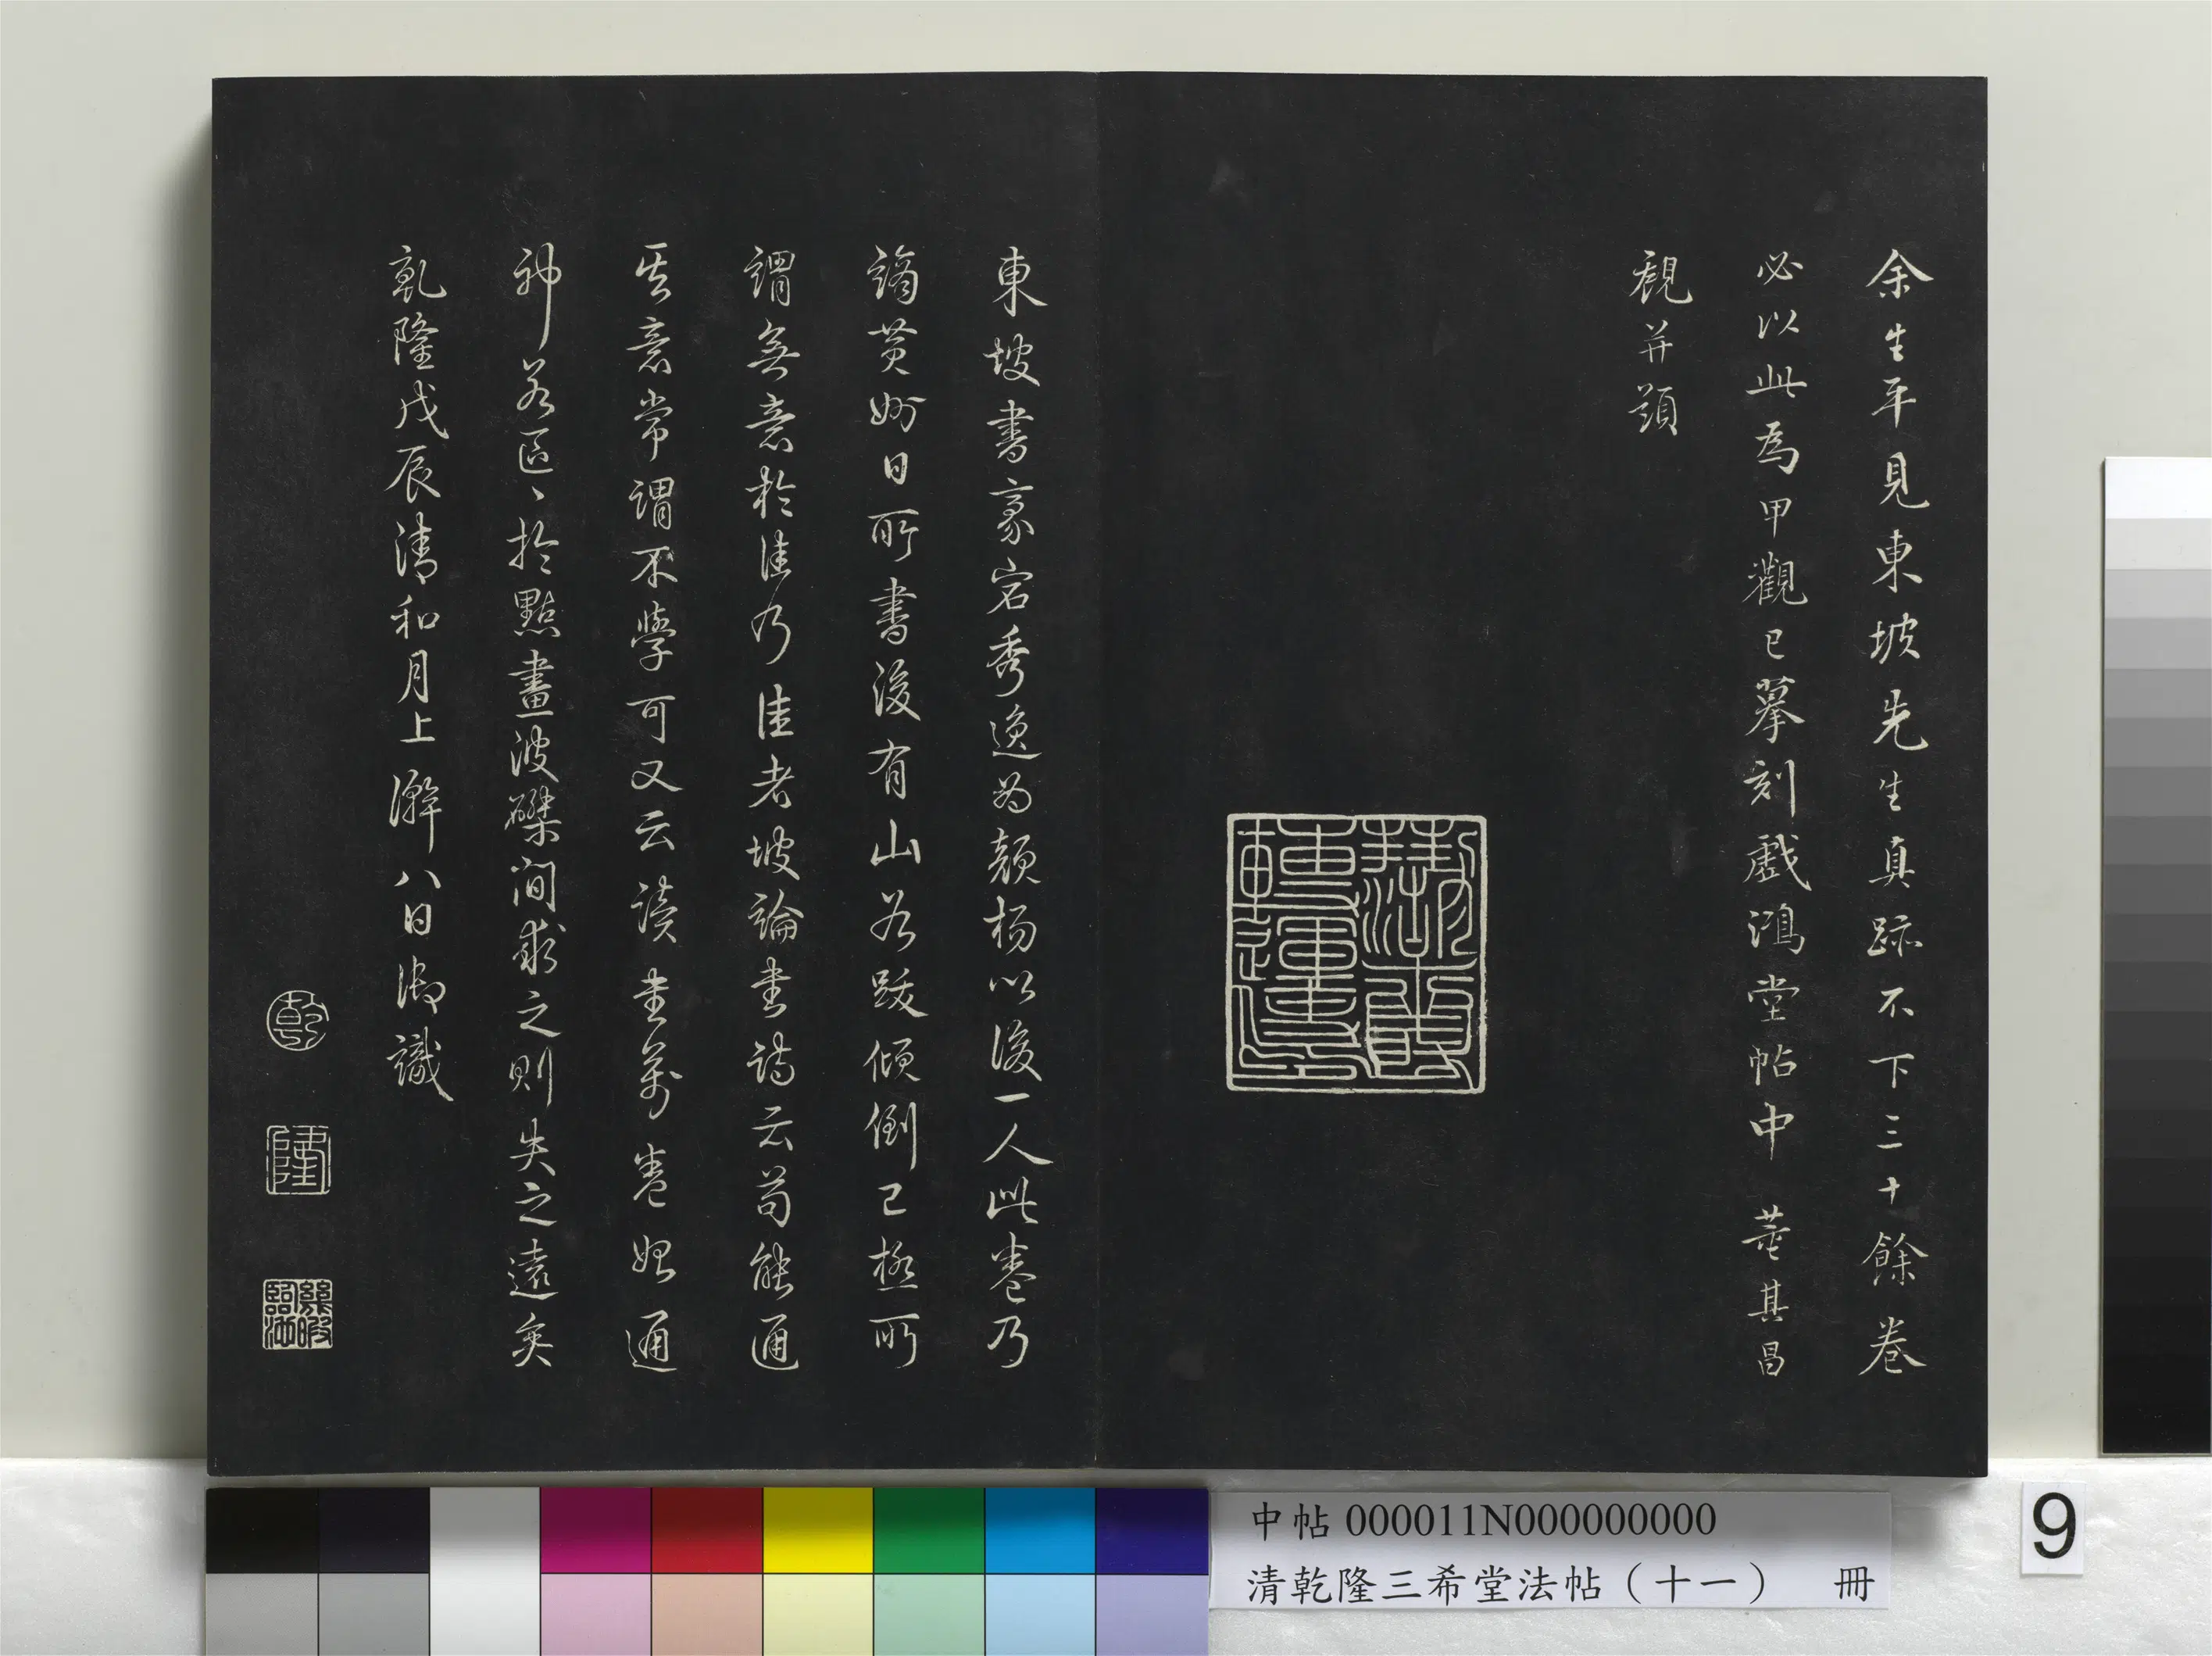 余生平見東坡先生真跡不下三十餘卷
必以此為甲觀已摹刻戲鴻堂帖中 董其昌
觀并題
東坡書豪宕秀逸為顏楊以後一人此卷乃
謫黃州日所書後有山谷跋傾倒已極所
謂無意於佳乃佳者坡論書詩云苟能通
其意常謂不學可又云讀書萬卷始通
神若區〻於點畫波磔間求之則失之遠矣
乾隆戊辰清和月上澣八日御識
乾
隆
幾暇臨池
中帖 000011N000000000
清乾隆三希堂法帖（十一） 冊
9